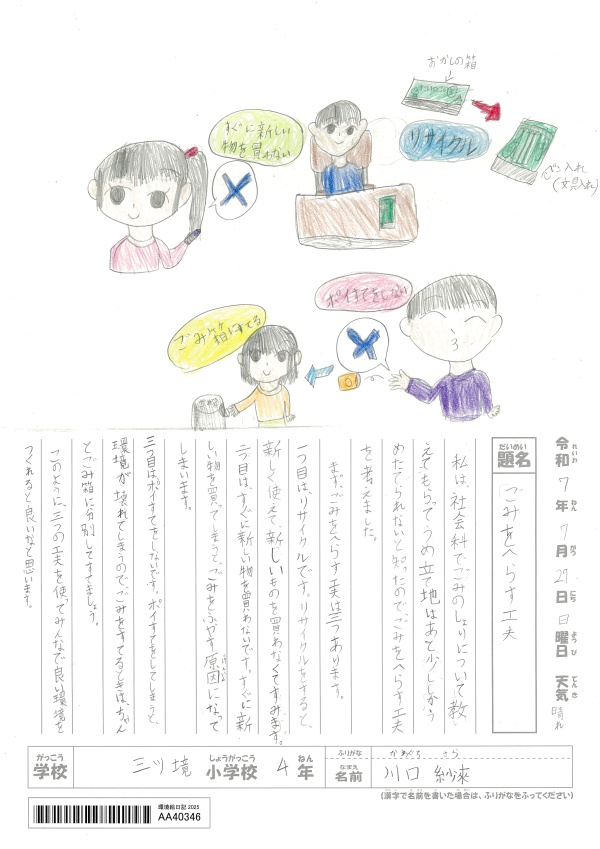 おかしの箱
すぐに新しい
物を買わない
リサイクル
ペン入れ
(文具入れ)
ポイすてをしない
ごみ箱にすてる
令和7年7月27日 日曜日 天気 晴れ
れいわ ねん がつ にち ようび てんき
だいめい
題名
「ごみをへらす工夫
私は、社会科でごみのしょりについて教
えてもらってうめ立て地はあと少ししかう
めたてられないと知ったので、ごみをへらす工夫
を考えました。
まず、ごみをへらす工夫は三つあります。
一つ目は、リサイクルです。リサイクルをすると、
新しく使えて、新しいものを買わなくてすみます。
二つ目は、すぐに新しい物を買わないです。すぐに新
しい物を買ってしまうと、ごみをふやす原因になって
しまいます。
三つ目はポイすてをしないです。ポイすてをしてしまうと、
環境が壊れてしまうので、ごみをすてるときは、ちゃん
とごみ箱に分別してすてましょう。
このように三つの工夫を使ってみんなで良い環境を
つくれると良いなと思います。
がっこう
学校
三ツ境
しょうがっこう
小学校
4
ねん
年
ふりがな
かわぐち さら
なまえ
名前
川口 紗來
(漢字で名前を書いた場合は、ふりがなをふってください)
環境絵日記 2025
AA40346